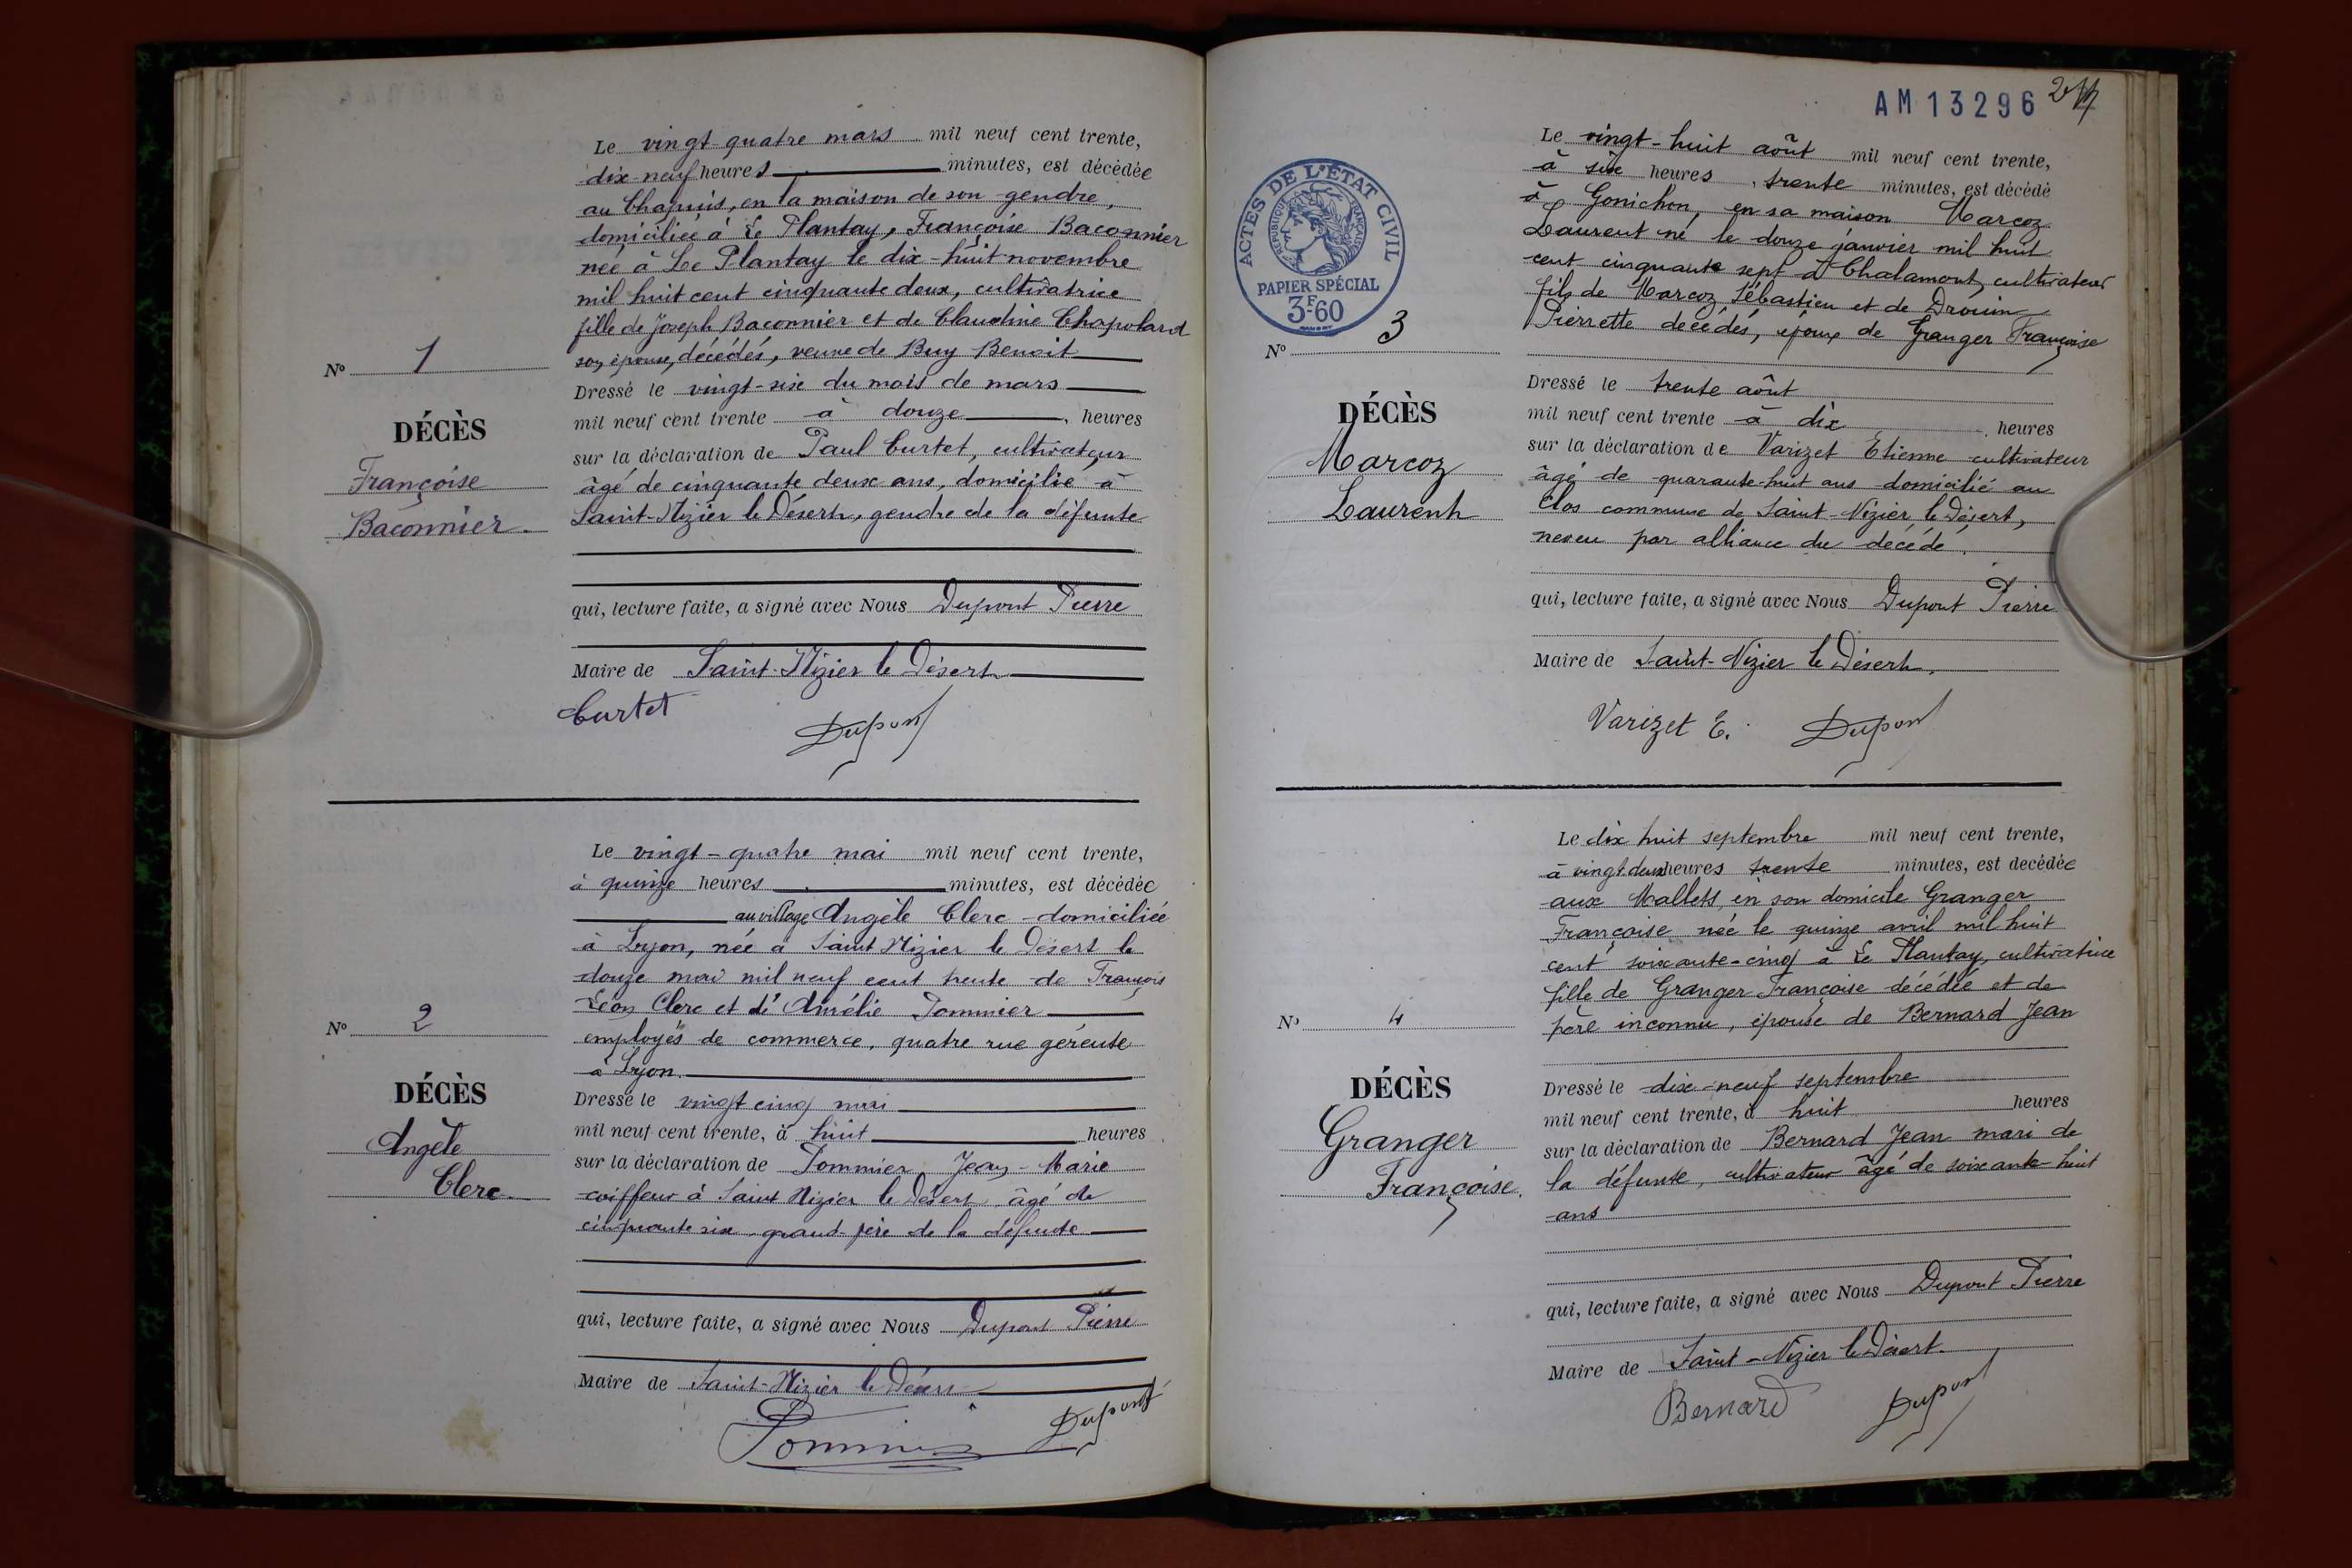 Le vingt-quatre mars mil neuf cent trente,
dix-neuf heures minutes, est décédée
au Chapuis, en la maison de son gendre,
domiciliée à Le Plantay, Françoise Baconnier
née à Le Plantay le dix-huit novembre
mil huit cent cinquante deux, cultivatrice
fille de Joseph Baconnier et de Claudine Chapolard
son épouse, décédés, veuve de Buy Benoit
Nº 1
Dressé le vingt-six du mois de mars
mil neuf cent trente à douze, heures
DÉCÈS
sur la déclaration de Paul Curtet, cultivateur
Françoise
âgé de cinquante deux ans, domicilié à
Baconnier.
Saint-Nizier le Désert, gendre de la défunte
qui, lecture faite, a signé avec Nous Dupont Pierre
Maire de Saint-Nizier le Désert
Curtet
Dupont
Le vingt-quatre mai mil neuf cent trente,
à quinze heures minutes, est décédée
au village Angèle Clerc domiciliée
à Lyon, née à Saint Nizier le Désert le
douze mai mil neuf cent trente de François
Léon Clerc et d'Amélie Pommier
Nº 2
employés de commerce, quatre rue gérente
à Lyon.
DÉCÈS
Dressé le vingt cinq mai
Angèle
mil neuf cent trente, à huit heures
Clerc.
sur la déclaration de Pommier Jean-Marie
coiffeur à Saint Nizier le Désert âgé de
cinquante six grand père de la défunte
qui, lecture faite, a signé avec Nous Dupont Pierre
Maire de Saint-Nizier le Désert
Pommier
Dupont
AM 13296
ACTES DE L'ÉTAT CIVIL
RÉPUBLIQUE FRANÇAISE
PAPIER SPÉCIAL
3F.60
Le vingt-huit août mil neuf cent trente,
à six heures, trente minutes, est décédé
à Gonichon, en sa maison Marcoz
Laurent né le douze janvier mil huit
cent cinquante sept à Chalamont, cultivateur
fils de Marcoz Sébastien et de Drouin
Pierrette décédés, époux de Granger Françoise
Nº 3
Dressé le trente août
DÉCÈS
mil neuf cent trente à dix, heures
Marcoz
sur la déclaration de Varizet Etienne cultivateur
Laurent
âgé de quarante-huit ans domicilié au
Clos commune de Saint-Nizier le Désert,
neveu par alliance du décédé.
qui, lecture faite, a signé avec Nous Dupont Pierre
Maire de Saint-Nizier le Désert.
Varizet E.
Dupont
Le dix huit septembre mil neuf cent trente,
à vingt deux heures trente minutes, est décédée
aux Mallets, en son domicile Granger
Françoise née le quinze avril mil huit
cent soixante-cinq à Le Plantay, cultivatrice
fille de Granger Françoise décédée et de
Nº 4
père inconnu, épouse de Bernard Jean
DÉCÈS
Dressé le dix-neuf septembre
Granger
mil neuf cent trente, à huit heures
Françoise.
sur la déclaration de Bernard Jean mari de
la défunte, cultivateur âgé de soixante-huit
ans
qui, lecture faite, a signé avec Nous Dupont Pierre
Maire de Saint-Nizier le Désert.
Bernard
Dupont